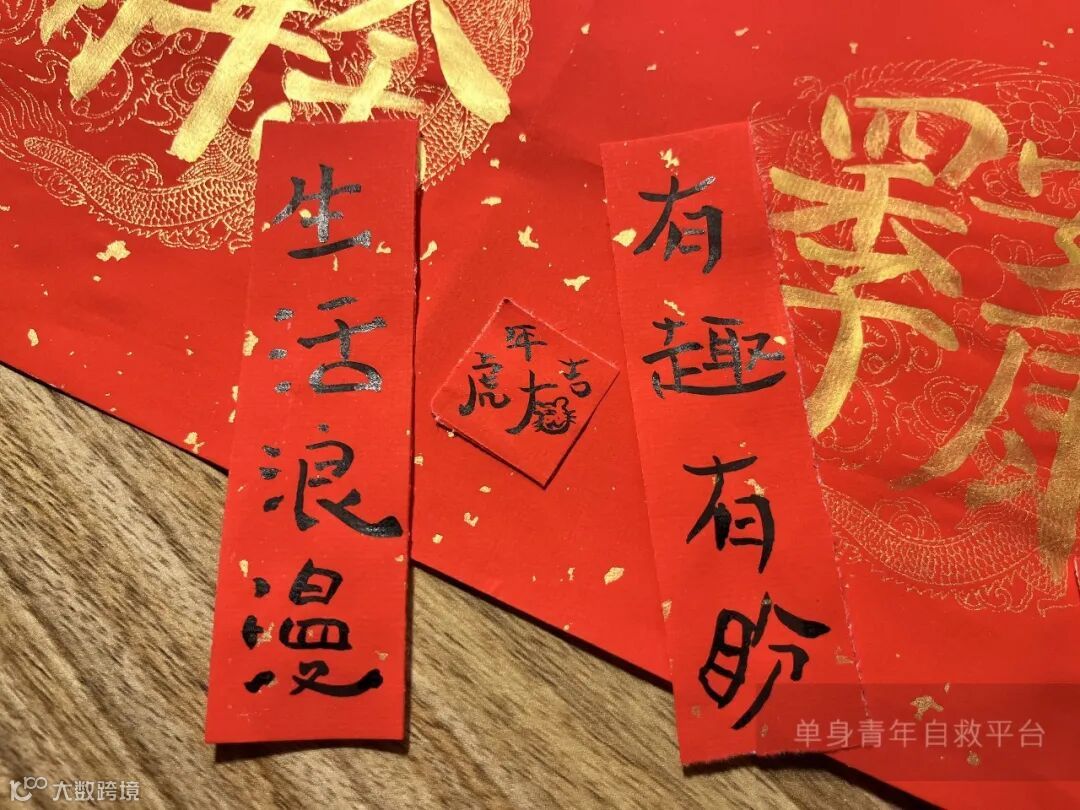 生活浪漫
虎年大吉
有趣有盼
四季
单身青年自救平台
大数跨境